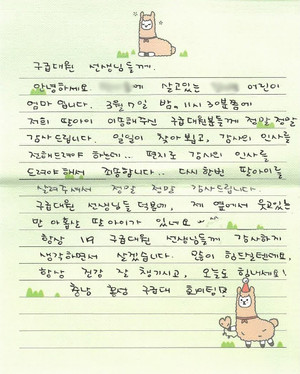 구급대원 선생님들께.
안녕하세요. 에 살고있는 어린이
엄마 입니다. 3월 7일 밤. 11시 30분쯤에
저희 딸아이 이송해주신 구급대원분들께 정말 정말
감사드립니다. 일일이 찾아 뵙고, 감사의 인사를
전해드려야 하는데.. 편지로 감사의 인사를
드려야 해서 죄송합니다.. 다시 한번 딸아이를
살려주셔서 정말 정말 감사드립니다.
구급대원 선생님들 덕분에, 제 옆에서 웃고있는
만 아홉살 딸 아이가 있네요 ^^
항상 119 구급대원 선생님들께 감사하게
생각하면서 살겠습니다. 많이 힘드실텐데요,
항상 건강 잘 챙기시고, 오늘도 힘내세요!
충남 홍성 구급대 화이팅!